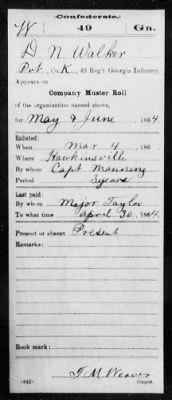 Confederate.
W 49 Ga.
D. N. Walker
Pvt, Co. K, 49 Reg't Georgia Infantry.
Appears on
Company Muster Roll
of the organization named above,
for May & June, 1864
Enlisted:
When Mar 4, 186
Where Hawkinsville
By whom Capt Manning
Period 3 years
Last paid:
By whom Major Taylor
To what time April 30, 1864.
Present or absent Present
Remarks:
Book mark:
T. M. Weaver
(642) Copyist.